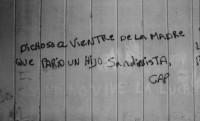 DICHOSO EL VIENTRE DE LA MADRE
QUE PARIO UN HIJO Sandinista,
GAP